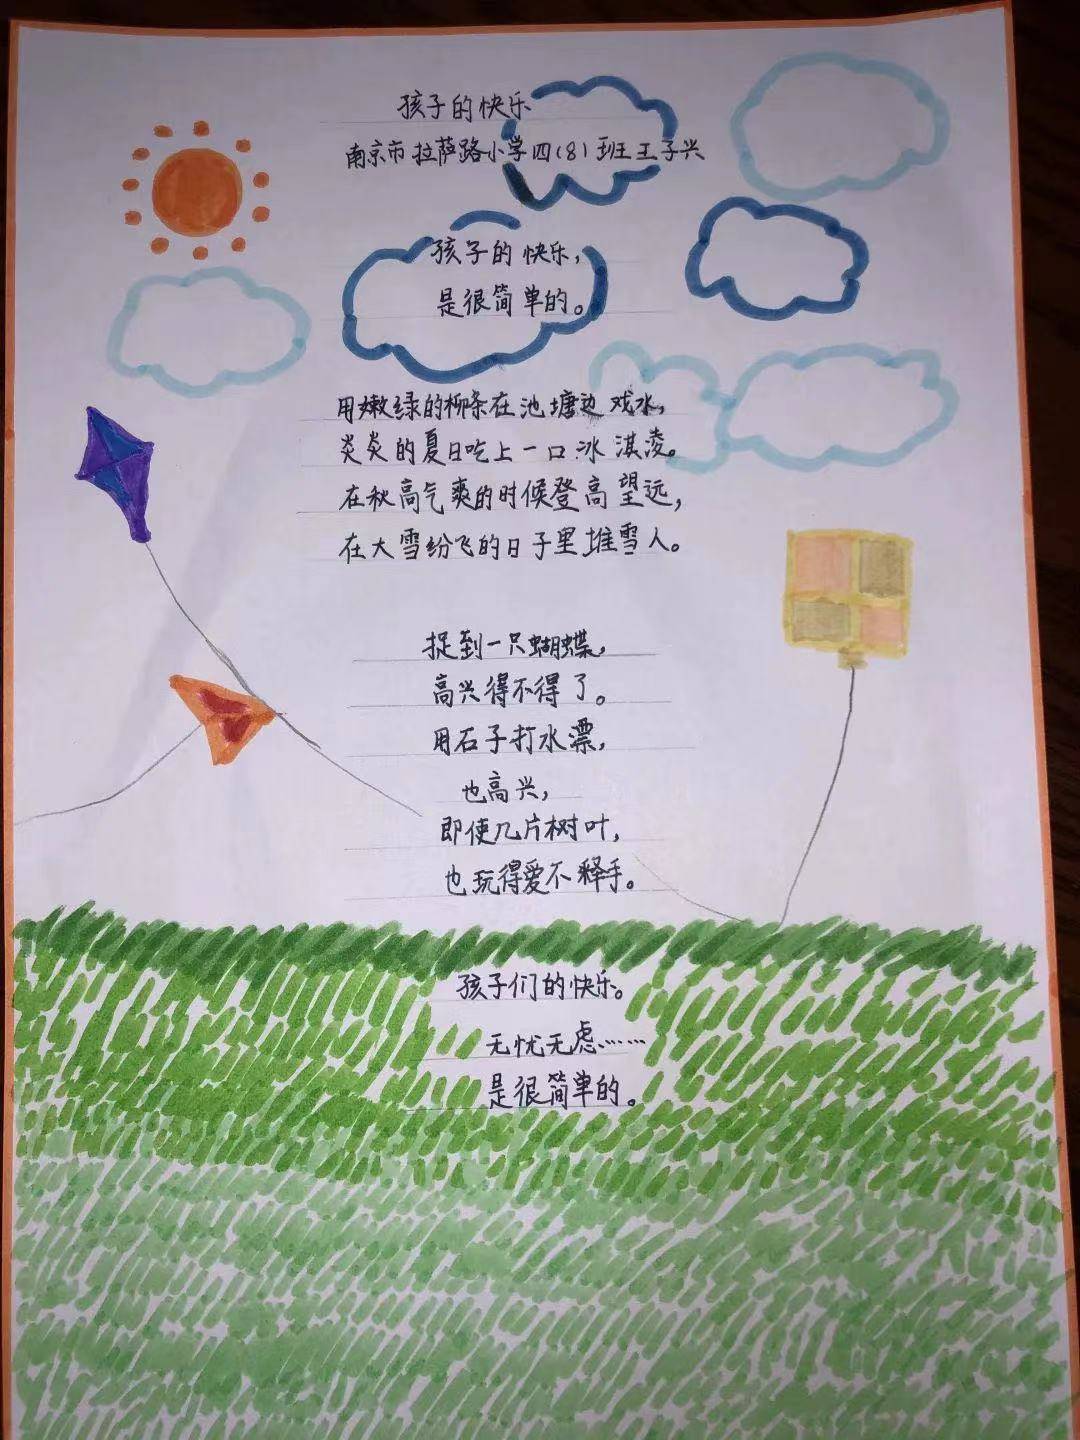 孩子的快乐
南京市拉萨路小学四(8)班王子兴
孩子的快乐,
是很简单的。
用嫩绿的柳条在池塘边戏水,
炎炎的夏日吃上一口冰淇凌。
在秋高气爽的时候登高望远,
在大雪纷飞的日子里堆雪人。
捉到一只蝴蝶,
高兴得不得了。
用石子打水漂,
也高兴,
即使几片树叶,
也玩得爱不释手。
孩子们的快乐。
无忧无虑……
是很简单的。